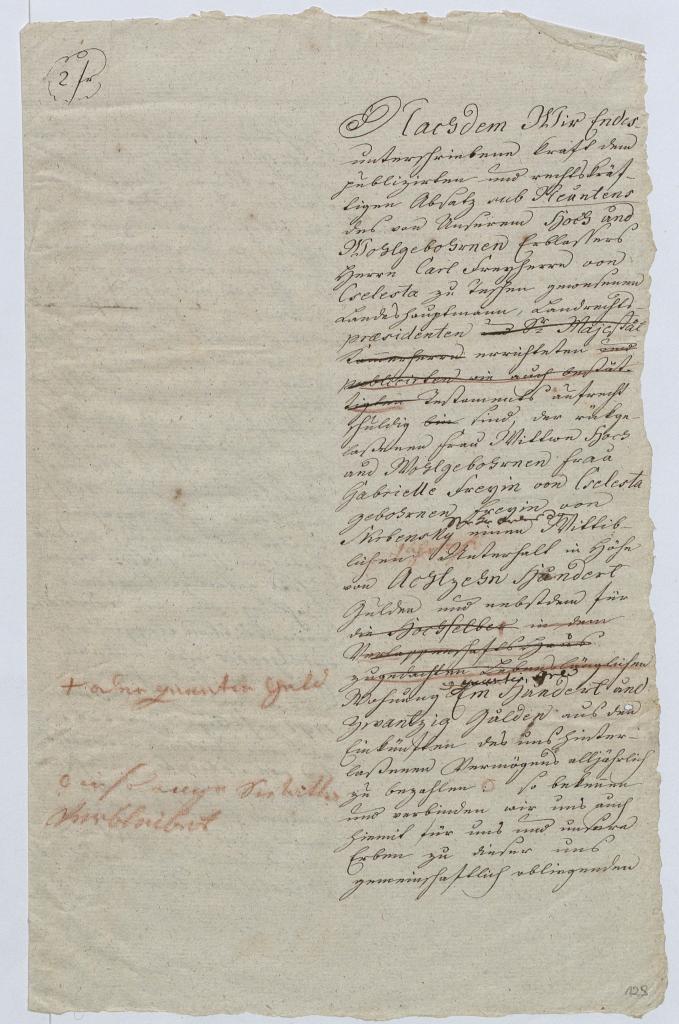 2
Nachdem Wir Endes-
unterschriebene kraft dem
publizirten und rechtskräf-
tigen Absatz sub Neuntens
des von Unserem Hoch und
Wohlgebohrnen Erblassers
Herrn Carl Freyherrn von
Cselesta zu Teschen gewesenen
Landeshauptmann, Landrechts
præsidenten und Sr. Majestät
Kammerherrn errichteten und
publicirten wie auch bestät-
tigten Testaments aufrecht
schuldig sind, der rükge-
lassenen Frau Wittwe Hoch
und Wohlgebohrnen Frau
Gabrielle Freyin von Cselesta
gebohrnen Freyin von
Skrbensky einen Wittib-
lichen Unterhalt in Höhe
von Achtzehn Hundert
Gulden und nebstdem für
die Hochselber in dem
Verlassenschafts-Haus
zugedachten Lebenslänglichen
Wohnung Ein Hundert und
Zwantzig Gulden aus den
Einkünften des uns hinter-
lassenen Vermögens alljährlich
zu bezahlen so bekennen
und verbinden wir uns auch
hiemit für uns und unsere
Erben zu dieser uns
gemeinschaftlich obliegenden
+ oder
verbleibet
128